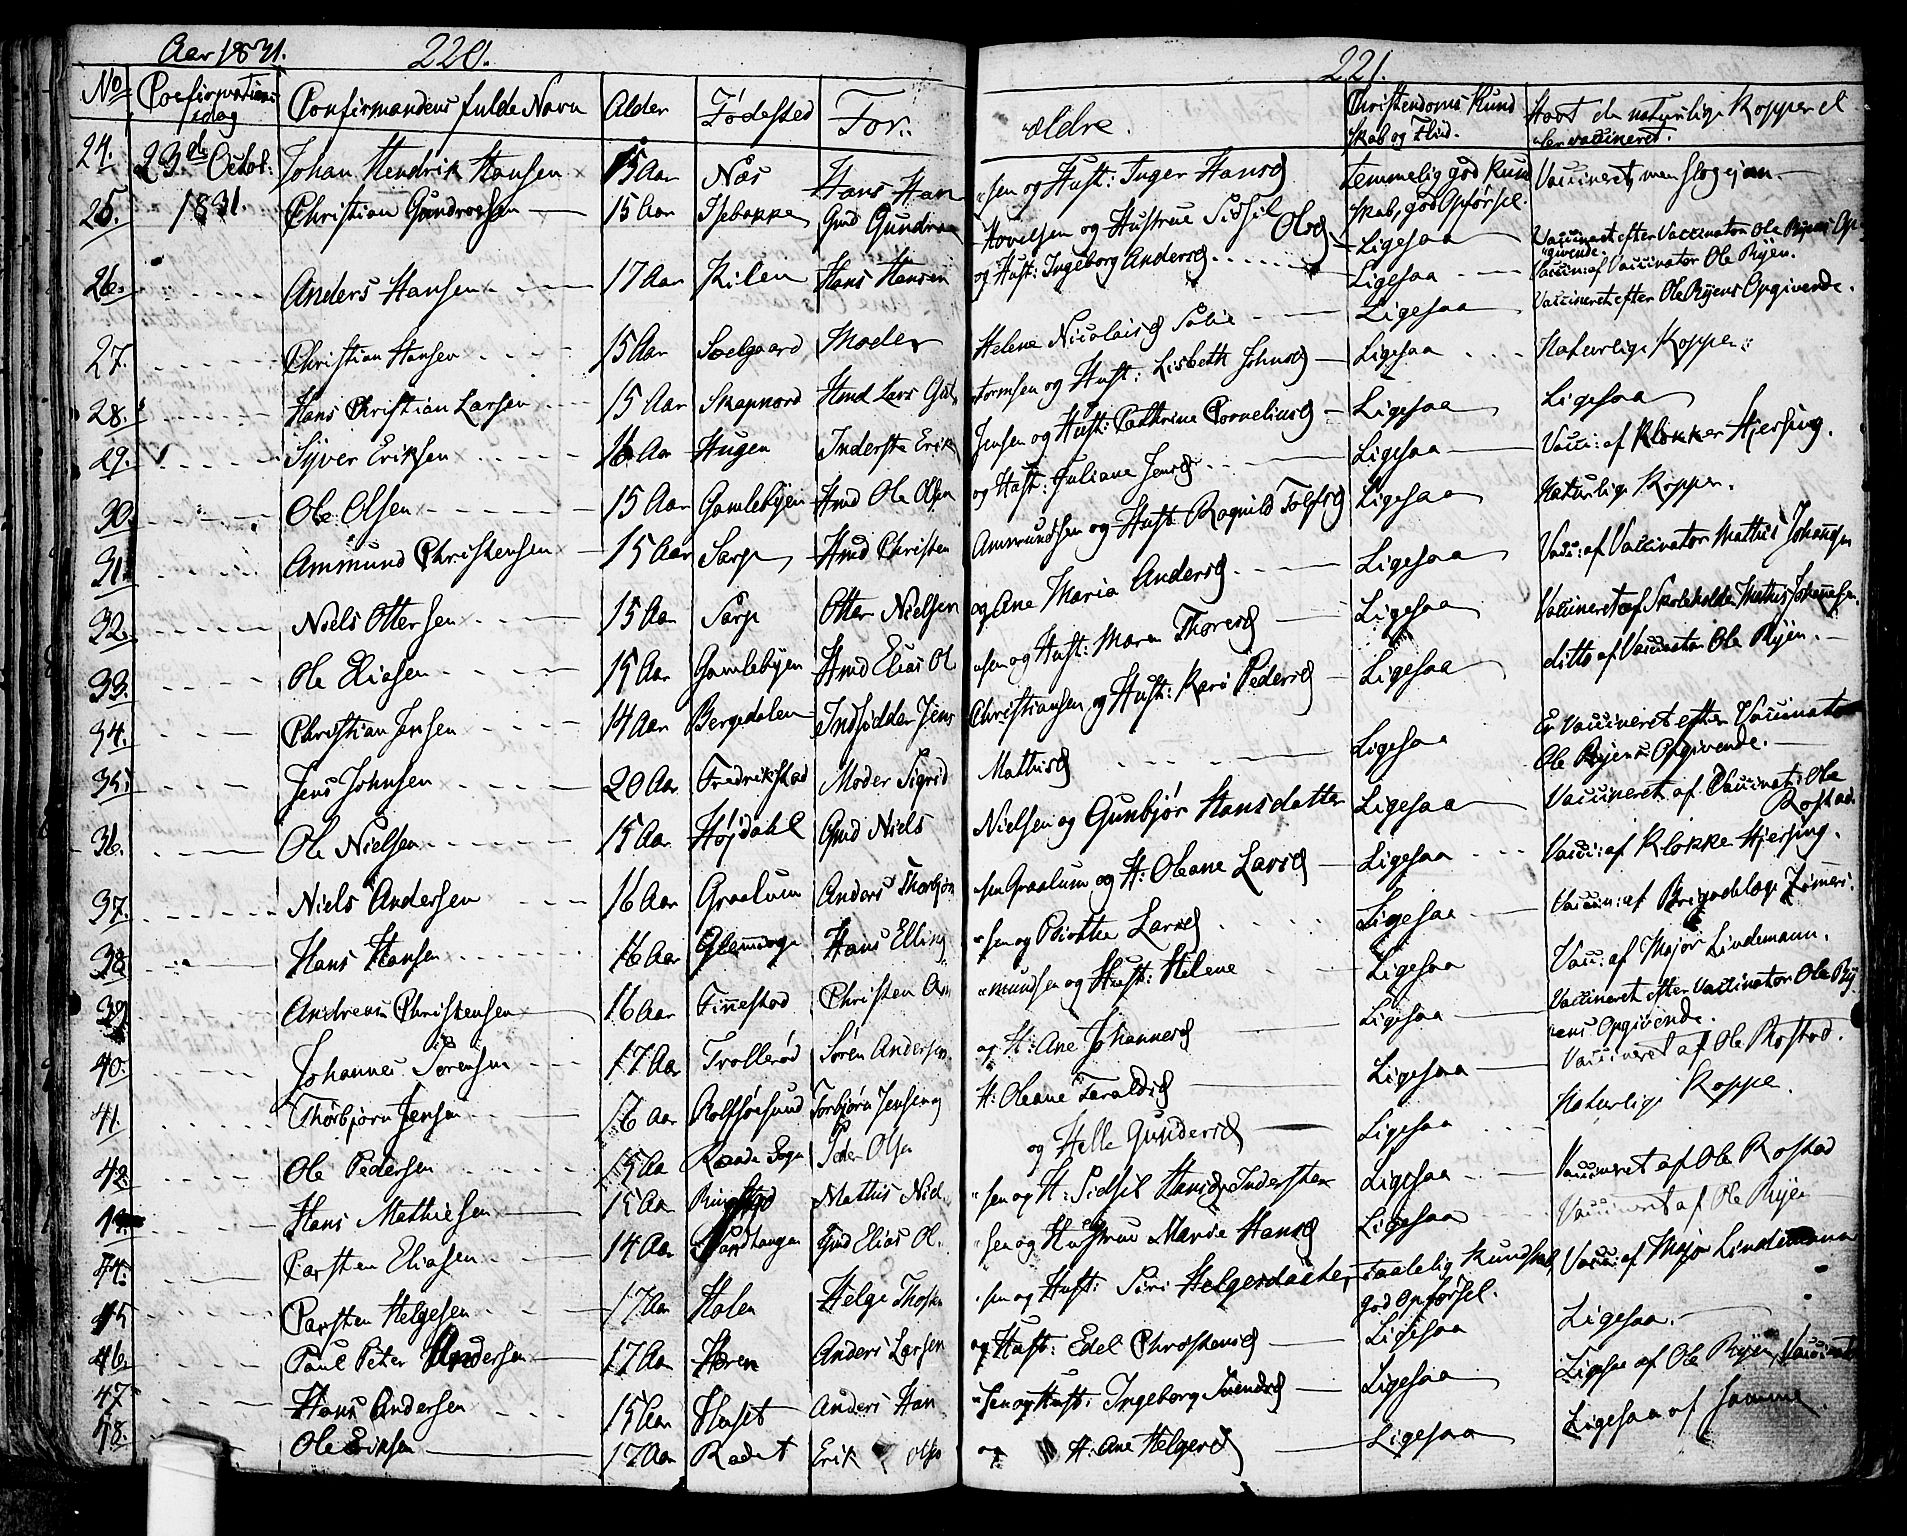 Aar 1831. 220.
No Confirmations dag Confirmandens fulde Navn Alder Fødested For:
24. 23de Octob: Johan Hendrik Hansen 15 Aar Næs Hans Han
25. 1831. Christian Gundrosen 15 Aar Isebakke Gmd
26. Anders Hansen 17 Aar Kilen Hans Hansen
27. Christian Hansen 15 Aar Soelgaard Moder
28. Hans Christian Larsen 15 Aar Skapnord Hmd Lars
29. Syver Eriksen 16 Aar Hugen Inderste Erik
30. Ole Olsen 15 Aar Gamlebyen Hmd Ole Olsen
31. Ammund Christensen 15 Aar Sarp Hmd Christen
32. Niels Ottersen 15 Aar Sarp Otter Nielsen
33. Ole Eliasen 15 Aar Gamlebyen Hmd Elias Ol
34. Christian Jensen 14 Aar Bergedalen Indsidder Jens
35. Jens Johnsen 20 Aar Fredrikstad Moder Sigrid
36. Ole Nielsen 15 Aar Højdahl Gmd Niels
37. Niels Andersen 16 Aar Graalum Anders Thorbjørn
38. Hans Hansen 16 Aar Glemmige Hans Elling
39 Andreas Christensen 16 Aar Finnestad Christen
40. Johannes Sørensen 17 Aar Trollerød Søren Andersen
41. Thorbjørn Jensen 16 Aar Rolfsøesund Torbjørn Jensen
42. Ole Pedersen 15 Aar Raade Sogn Peder Olsen
Hans Mathiesen 15 Aar Mathis Niel
44. Carsten Eliasen 14 Aar Sandtangen Gmd Elias Ol
45 Carsten Helgesen 17 Aar Holen Helge
46 Paul Peter Andersen 17 Aar Haren Anders Larsen
47 Hans Andersen 15 Aar Huset Anders Han
48. Ole Eriksen 17 Aar Rødet Erik Olsen
221.
ældre. Christendoms Kund skab og Flid. Havt de naturlige Kopper el ler vaccineret.
sen og Hust: Inger Hansd Temmelig god Kund skab, god Opførsel. Vaccineret, men
og Hustrue Sidsil Olsd Ligesaa Vaccineret efter Vaccinator Ole Ryens Op givende
og Hust: Ingeborg Andersd Ligesaa Vaccin: af Vaccinator Ole Ryen.
Helene Nicolaisd Ligesaa Vaccineret efter Ole Ryens Opgivende.
og Hust: Lisbeth Johnsd Ligesaa Naturlige Kopper
Jensen og Hust: Cathrine Corneliusd Ligesaa Ligesaa
og Hust: Juliane Jensd Ligesaa Vacci: af Klokker Hjersing.
Ammundsen og Hust Ragnild Ligesaa Naturlige Kopper.
og Ane Maria Andersd Ligesaa Vacci: af Vaccinator Mathis Johannsen
sen og Hust: Maren Thoresd Ligesaa Vaccineret af Skoleholder Mathis Johannesen.
Christiansen og Hust: Kari Pedersd Ligesaa ditto af Vaccinator Ole Ryen.
Mathisd Ligesaa Er Vaccineret efter Vaccinator Ole Ryens Opgivende.
Nielsen og Gunbjør Hansdatter Ligesaa Vaccineret af Vaccinat: Ole Rostad.
sen Graalum og H: Oleane Larsd Ligesaa Vacci: af Klokker Hjersing.
sen og Larsd Ligesaa Vaccin: af Brigadelæge
mundsen og Hust: Helene Ligesaa Vacc: af Major Lindemann.
og H: Ane Johannesd Ligesaa Vaccineret efter Vaccinator Ole Ry ens Opgivende.
H: Oleane Taraldsd Ligesaa Vaccineret af Ole Rostad.
og Helle Gundersd Ligesaa Naturlige Koppe.
sen og H: Sidsil Hansd, Indersten Ligesaa Vaccineret af Ole Rostad
sen og Hustrue Marie Hansd Ligesaa Vaccineret af Ole Ryen
sen og Hust: Siri Helgesdatter, taalelig Kundskab, god Opførsel. Vacci: af Major Lindemann
og Hust: Edel Christensd Ligesaa Ligesaa.
sen og Hust: Ingeborg Svendsd Ligesaa Ligesaa af Ole Ryen, Vaccinat
og H: Ane Helgesd Ligesaa Ligesaa af Samme.